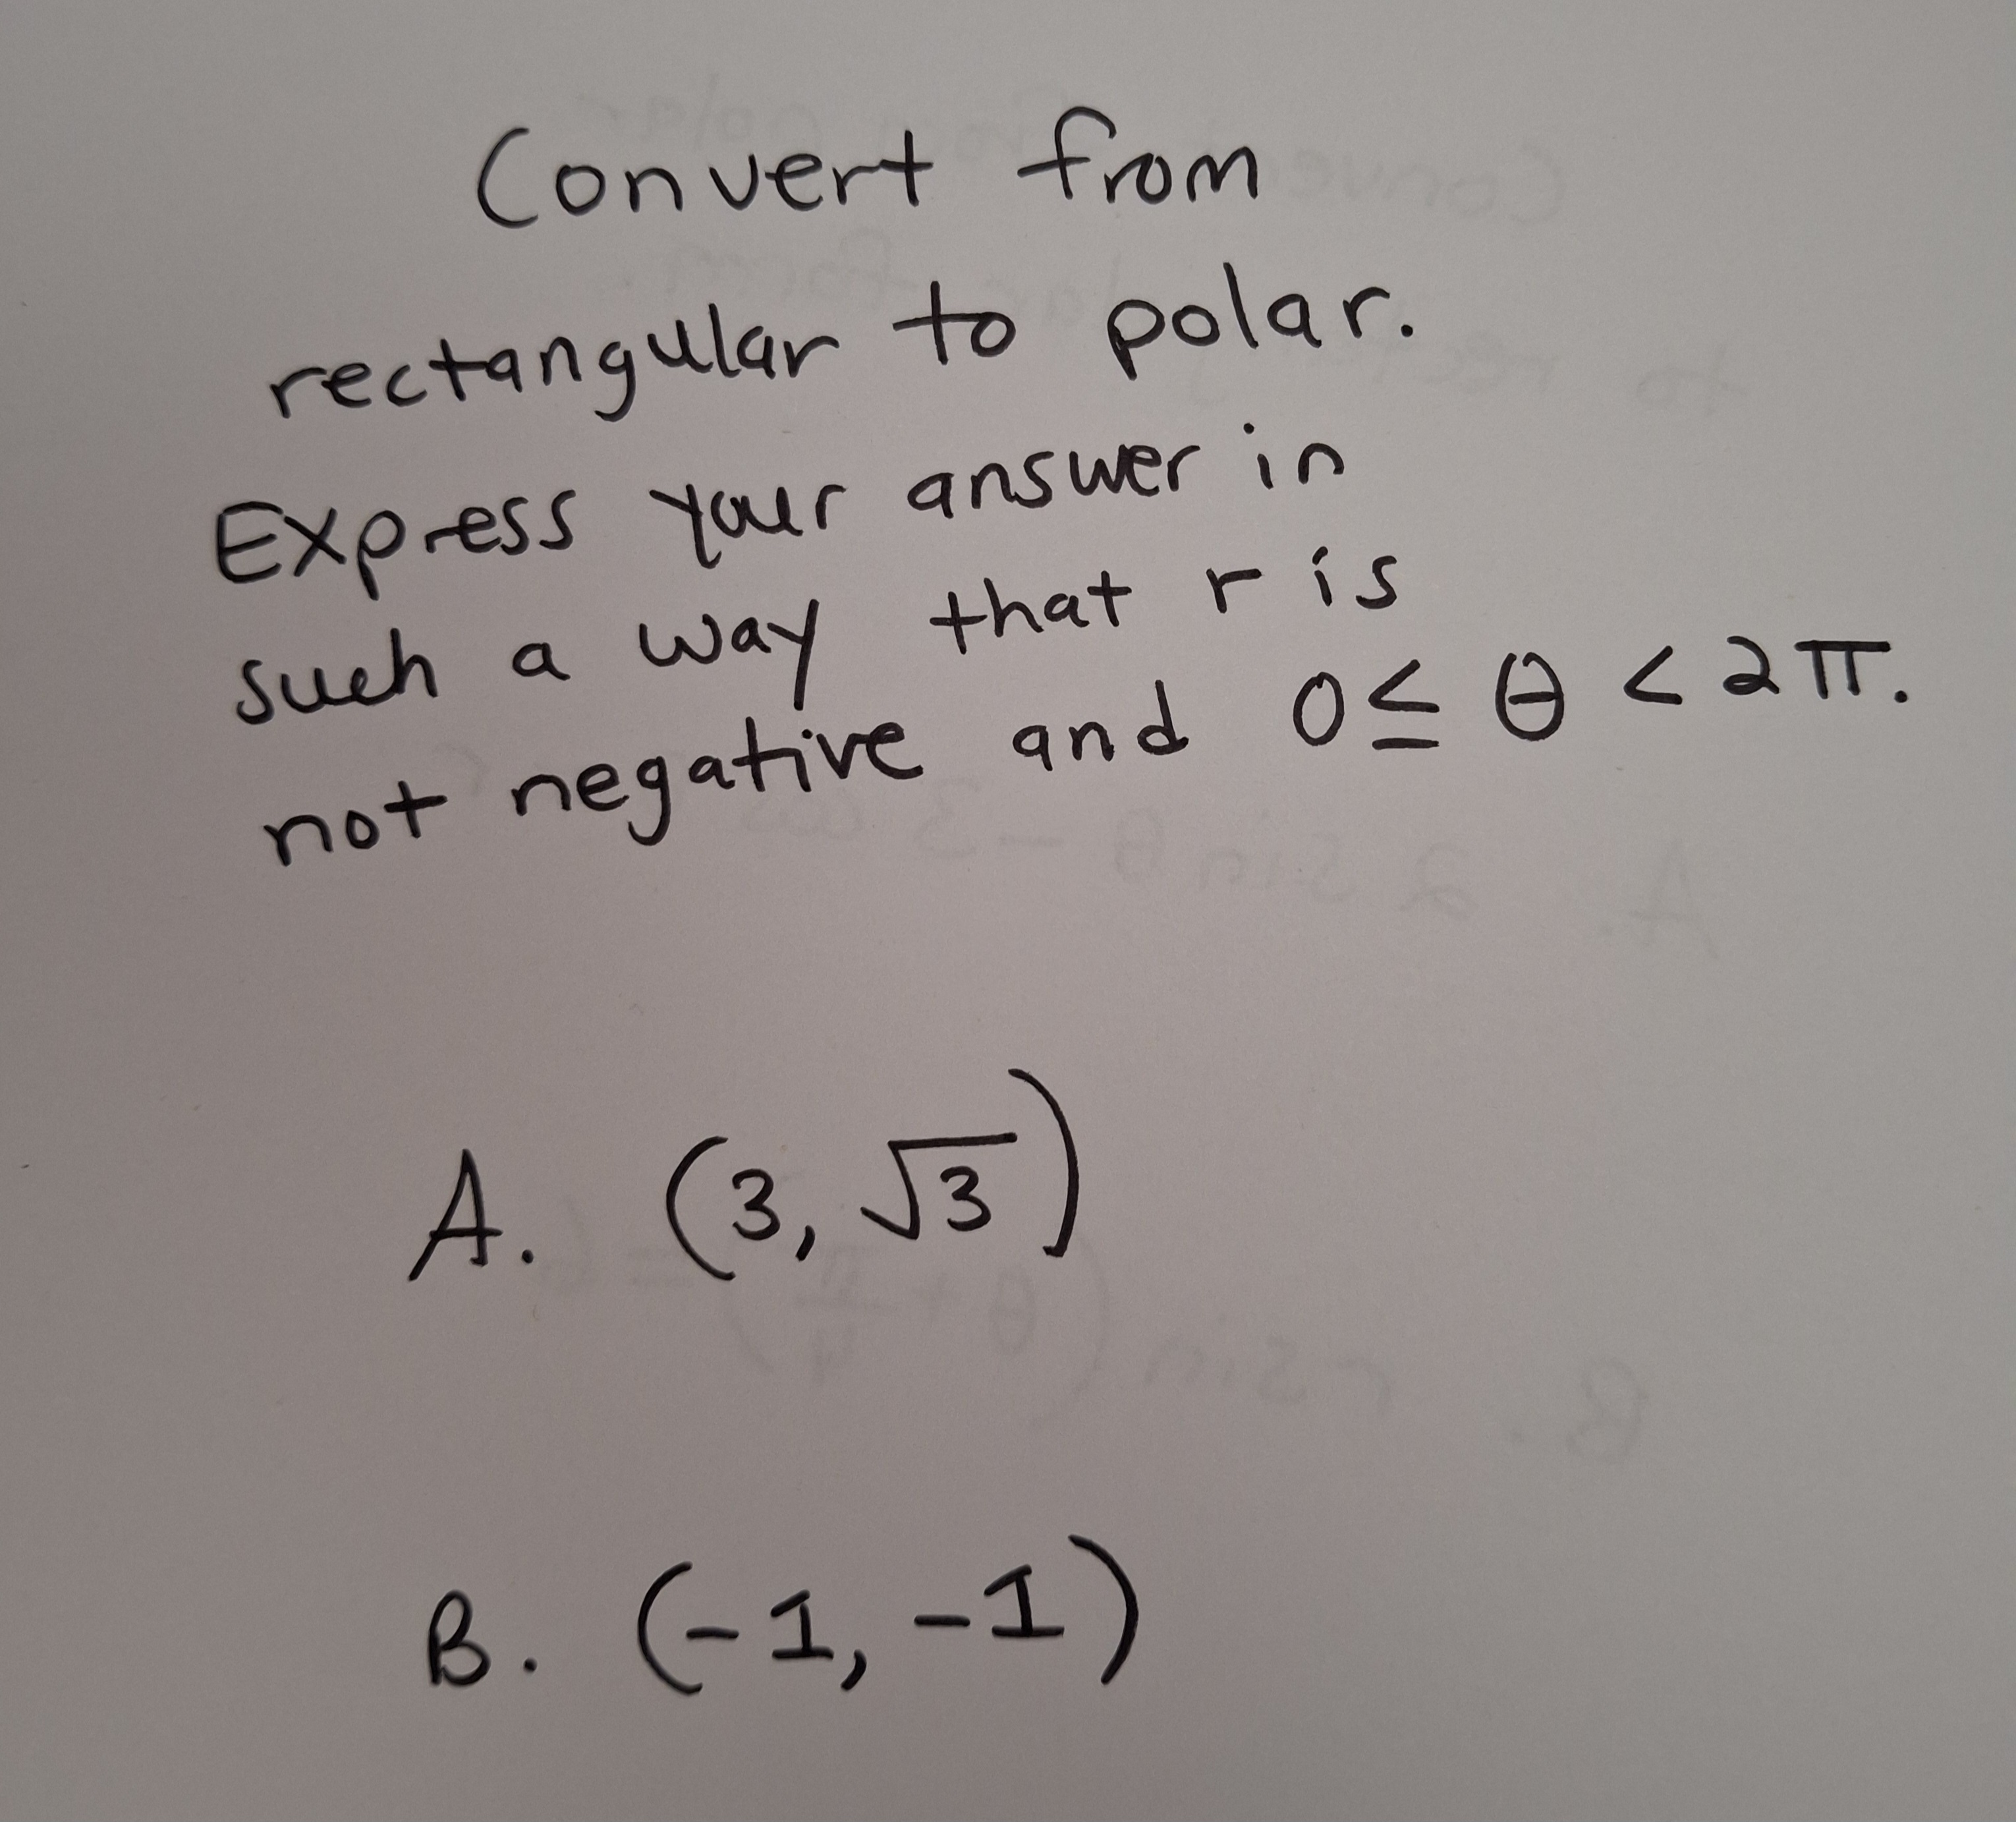 Convert from
rectangular to polar.
Express your answer in
such a way that r is
not negative and 0 ≤ θ < 2π.
A. (3, √3)
B. (-1, -1)